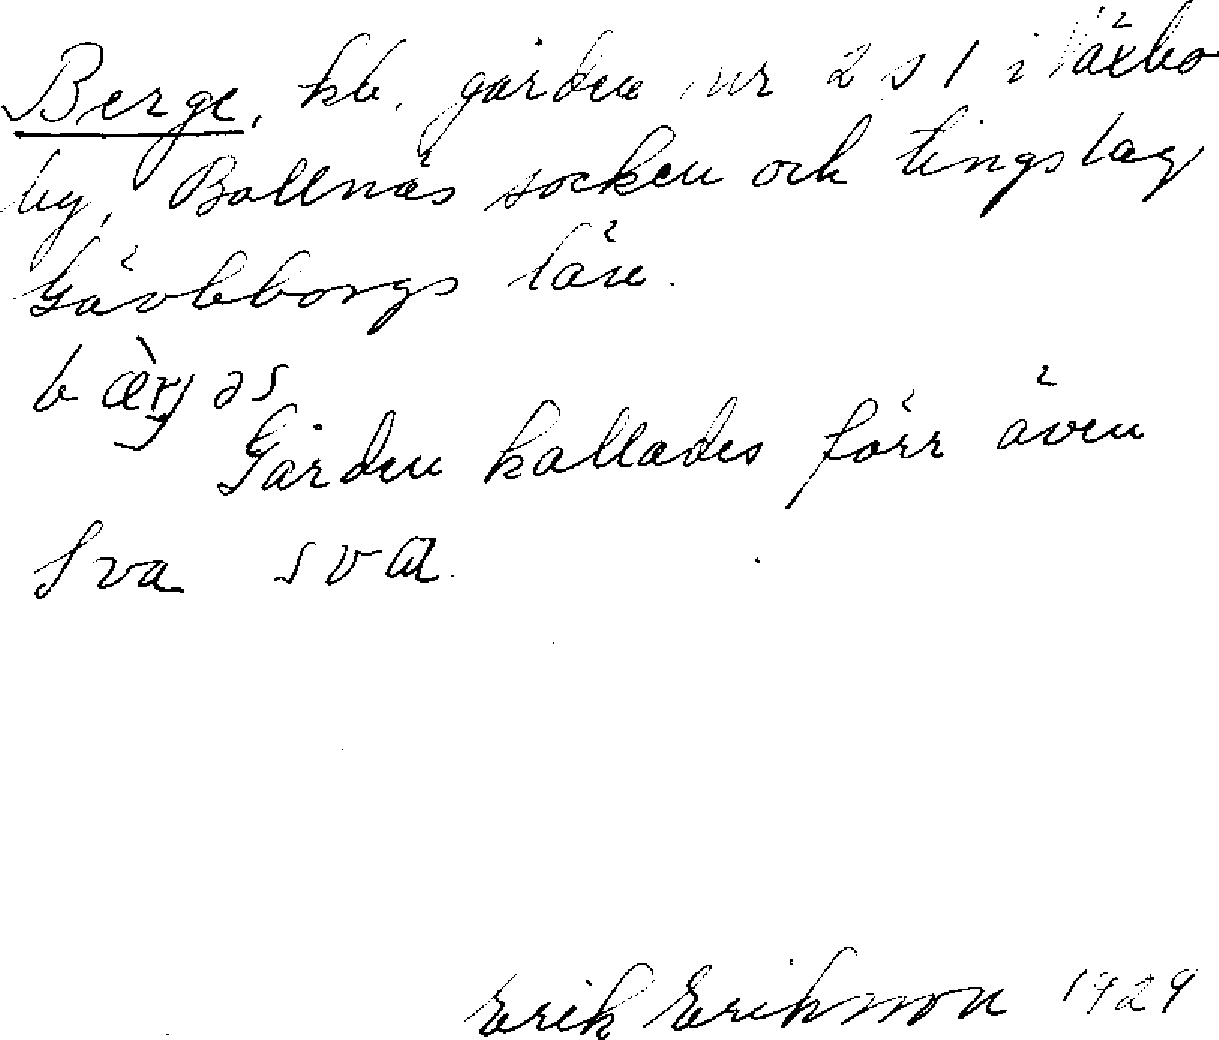 Berge, hb. gården nr 2 s 1 i Växbo
by, Bollnäs socken och tingslag
Gävleborgs län.
bær̀jəs
Gården kallades förr även
Sva sva.
Erik Erikson 1929